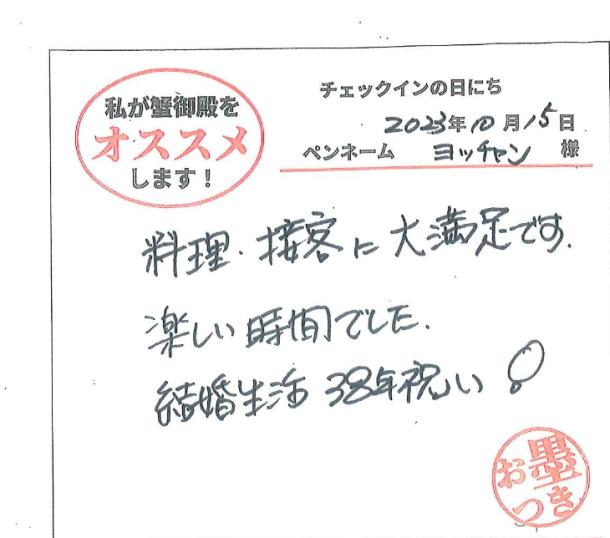 私が蟹御殿を
オススメ
します！
チェックインの日にち
2023年10月15日
ペンネーム ヨッチャン 様
料理・接客に大満足です.
楽しい時間でした.
結婚生活38年祝い！
お墨
つき